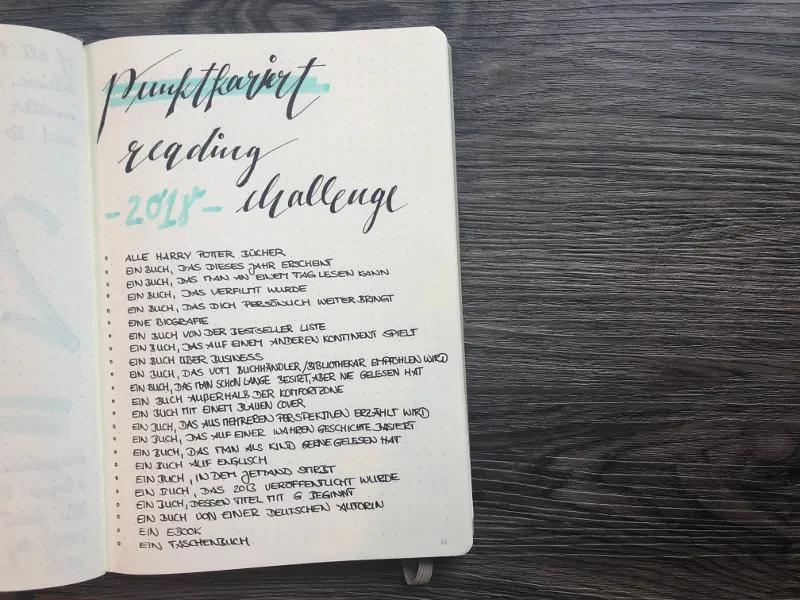 Punktkariert
reading
-2018- challenge
ALLE HARRY POTTER BÜCHER
EIN BUCH, DAS DIESES JAHR ERSCHEINT
EIN BUCH, DAS MAN AN EINEM TAG LESEN KANN
EIN BUCH, DAS VERFILMT WURDE
EIN BUCH, DAS DICH PERSÖNLICH WEITERBRINGT
EINE BIOGRAFIE
EIN BUCH VON DER BESTSELLER LISTE
EIN BUCH, DAS AUF EINEM ANDEREN KONTINENT SPIELT
EIN BUCH ÜBER BUSINESS
EIN BUCH, DAS VOM BUCHHÄNDLER/BIBLIOTHEKAR EMPFOHLEN WIRD
EIN BUCH, DAS MAN SCHON LANGE BESITZT, ABER NIE GELESEN HAT
EIN BUCH AUßERHALB DER KOMFORTZONE
EIN BUCH MIT EINEM BLAUEN COVER
EIN BUCH, DAS AUS MEHREREN PERSPEKTIVEN ERZÄHLT WIRD
EIN BUCH, DAS AUF EINER WAHREN GESCHICHTE BASIERT
EIN BUCH, DAS MAN ALS KIND GERNE GELESEN HAT
EIN BUCH AUF ENGLISCH
EIN BUCH, IN DEM JEMAND STIRBT
EIN BUCH, DAS 2013 VERÖFFENTLICHT WURDE
EIN BUCH, DESSEN TITEL MIT G BEGINNT
EIN BUCH VON EINER DEUTSCHEN AUTORIN
EIN EBOOK
EIN TASCHENBUCH